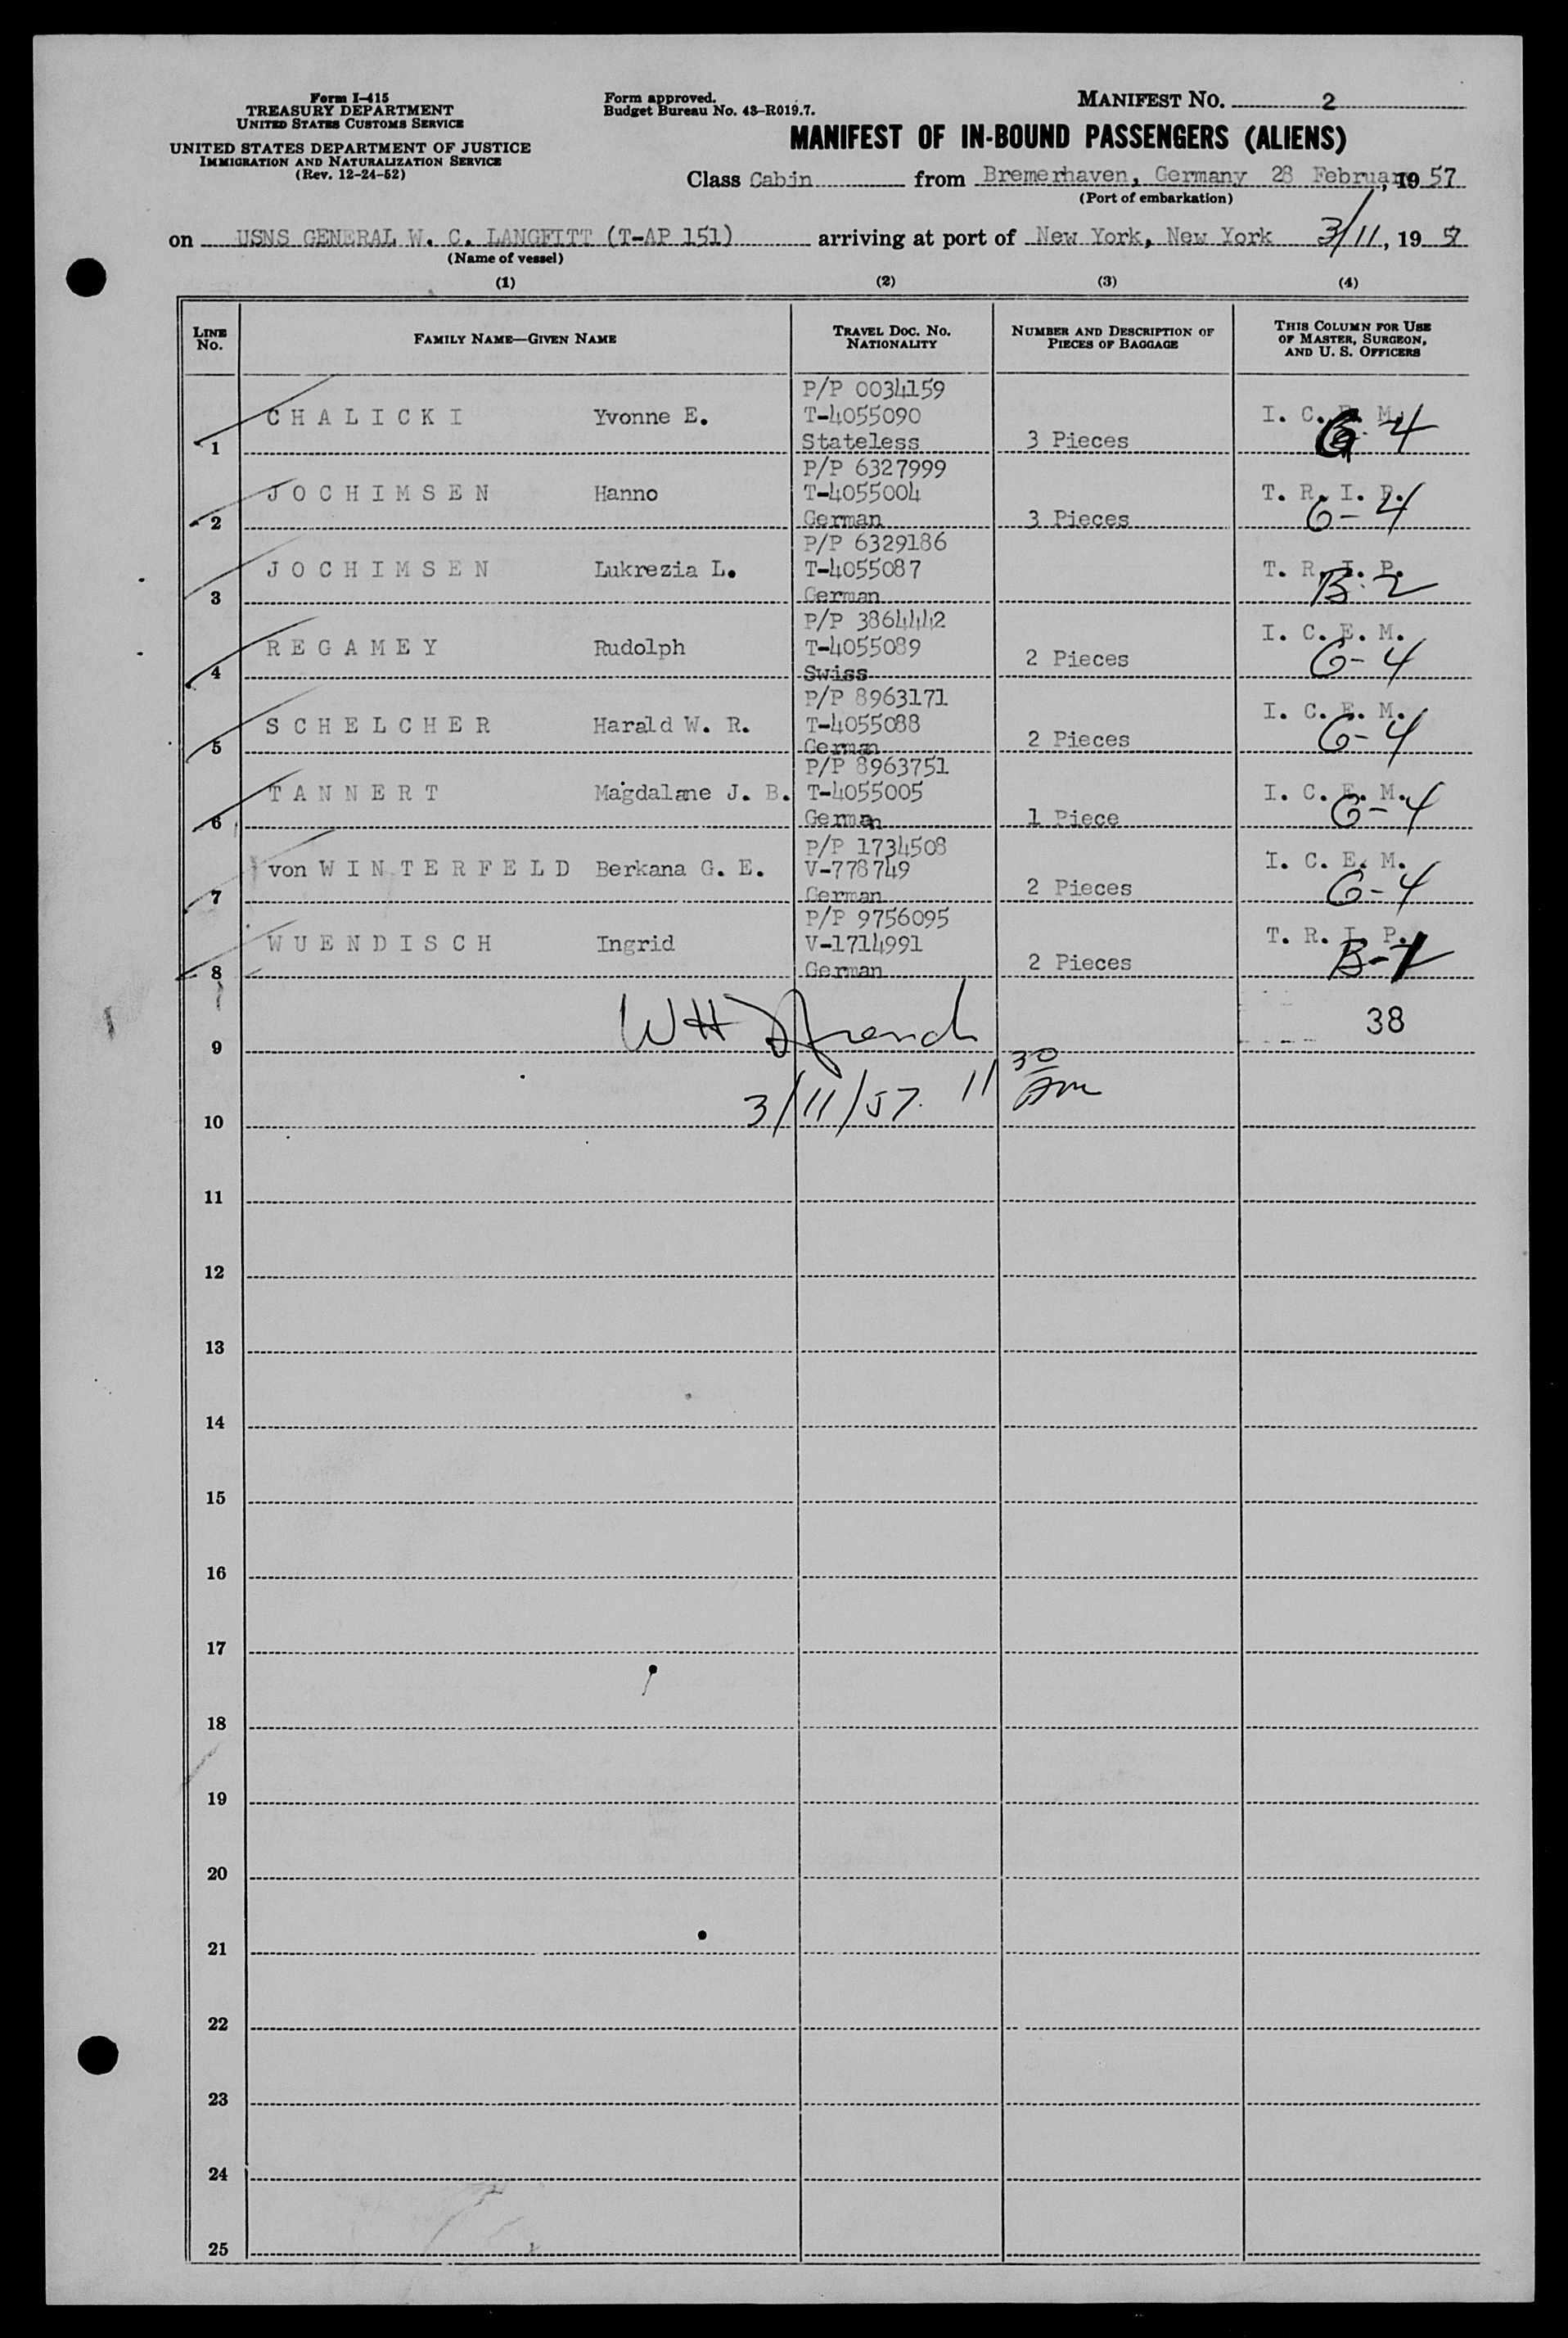 Form I-415
TREASURY DEPARTMENT
UNITED STATES CUSTOMS SERVICE
UNITED STATES DEPARTMENT OF JUSTICE
IMMIGRATION AND NATURALIZATION SERVICE
(Rev. 12-24-52)
Form approved.
Budget Bureau No. 43-R019.7.
MANIFEST NO. 2
MANIFEST OF IN-BOUND PASSENGERS (ALIENS)
Class Cabin from Bremerhaven, Germany 28 February, 1957
(Port of embarkation)
on USNS GENERAL W. C. LANGFITT (T-AP 151) arriving at port of New York, New York 3/11, 1957
(Name of vessel)
(1) (2) (3) (4)
LINE NO. FAMILY NAME—GIVEN NAME TRAVEL DOC. NO. NATIONALITY NUMBER AND DESCRIPTION OF PIECES OF BAGGAGE THIS COLUMN FOR USE OF MASTER, SURGEON, AND U. S. OFFICERS
P/P 0034159
CHALICKI Yvonne E. T-4055090 I. C. E. M. G-4
1 Stateless 3 Pieces
P/P 6327999
JOCHIMSEN Hanno T-4055004 T. R. I. P. G-4
2 German 3 Pieces
P/P 6329186
JOCHIMSEN Lukrezia L. T-4055087 T. R. I. P. B-2
3 German
P/P 3864442
REGAMEY Rudolph T-4055089 I. C. E. M. G-4
4 Swiss 2 Pieces
P/P 8963171
SCHELCHER Harald W. R. T-4055088 I. C. E. M. G-4
5 German 2 Pieces
P/P 8963751
TANNERT Magdalene J. B. T-4055005 I. C. E. M. G-4
6 German 1 Piece
P/P 1734508
von WINTERFELD Berkana G. E. V-778749 I. C. E. M. G-4
7 German 2 Pieces
P/P 9756095
WUENDISCH Ingrid V-1714991 T. R. I. P. B-1
8 German 2 Pieces
WH 38
9
3/11/57. 11 30 am
10
11
12
13
14
15
16
17
18
19
20
21
22
23
24
25